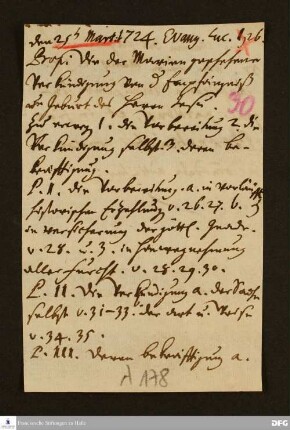 den 25ᵗ Mart. 1724. Evang. Luc. 1, 26
Propos: Die der Marien geschehene
Verkündigung von der Empfängniß
und Geburt des Herrn Jesu.
30
Zu erwegen 1. die Vorbereitung 2. die
Verkündigung selbst 3. deren be-
kräfftigung.
P. I. die Vorbereitung. a. in
historischer Erzehlung v. 26. 27. b.
in versicherung der göttl. Gnade.
v. 28. u. 3. in hinwegnehmung
aller furcht. v. 28. 29. 30.
P. II. die Verkündigung a. der Sache
selbst v. 31-33. der art u. Weise
v. 34. 35.
P. III. deren bekräfftigung a.
A 178
Franckesche Stiftungen zu Halle
DFG